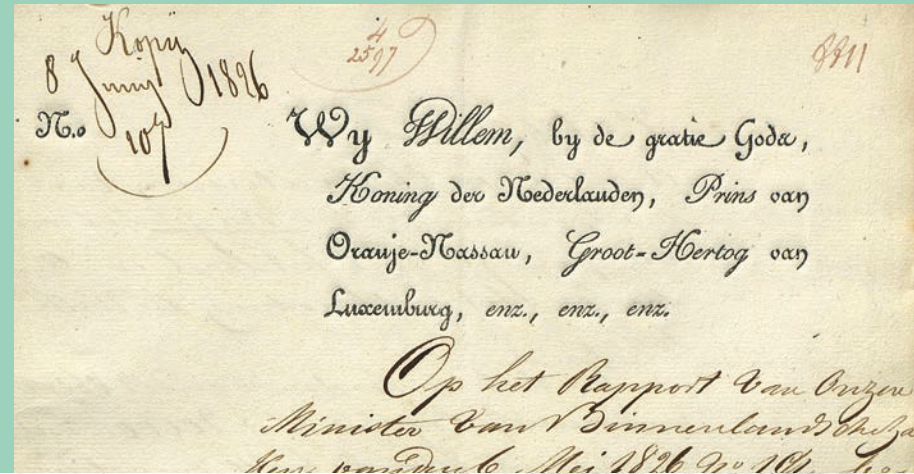 Kopij
8 Junij 1826
N.o 107
4
2597
Wy Willem, by de gratie Gods,
Koning der Nederlanden, Prins van
Oranje-Nassau, Groot-Hertog van
Luxemburg, enz., enz., enz.
Op het Rapport van Onzen
Minister van Binnenlandsche Za
ken van den 6 Mei 1826 no